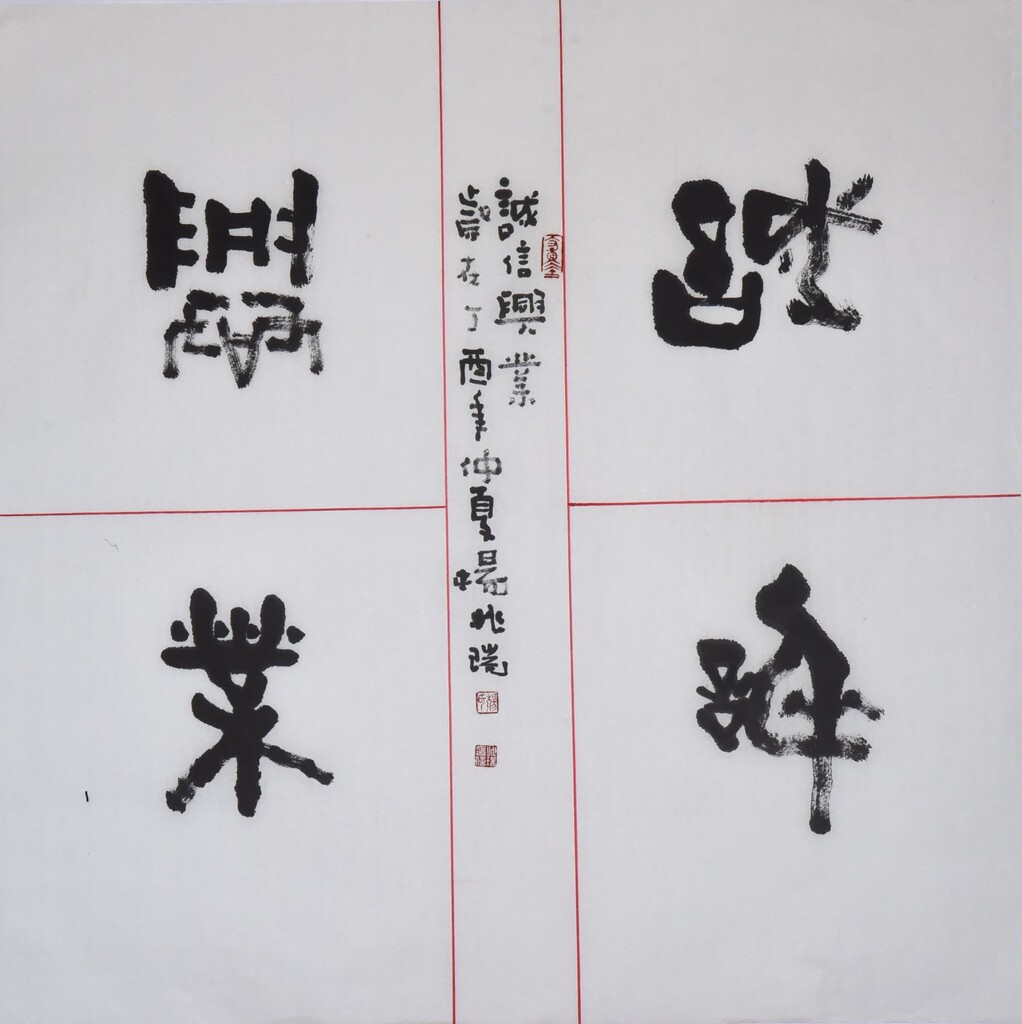 誠信
興業
誠信興業
歲在丁酉年仲夏楊兆瑞